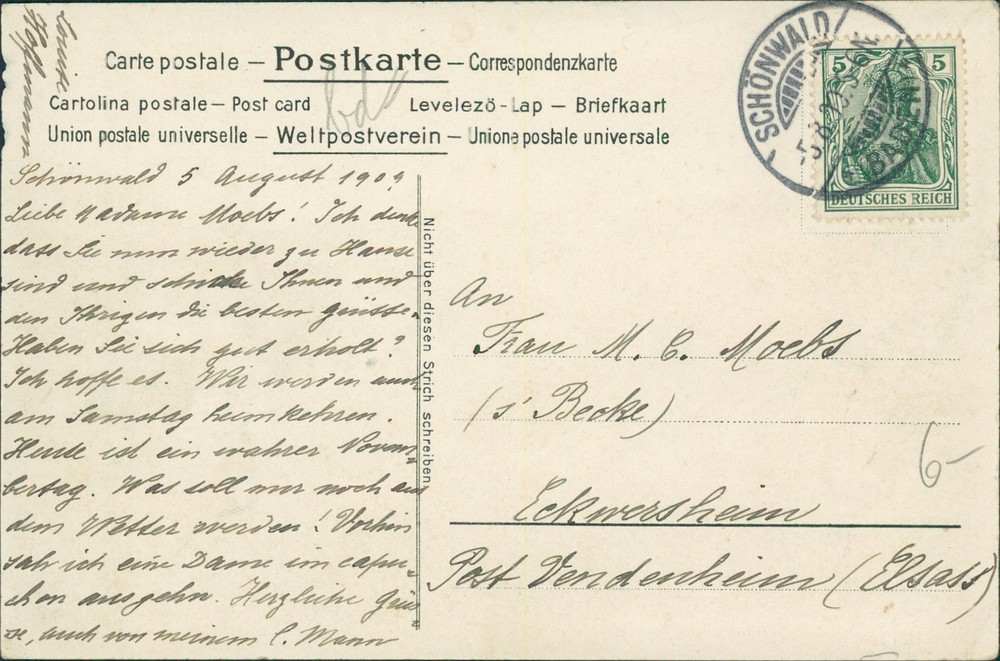 Carte postale — Postkarte — Correspondenzkarte
Cartolina postale — Post card Levelezö-Lap — Briefkaart
Union postale universelle — Weltpostverein — Unione postale universale
SCHÖNWALD
5 5
DEUTSCHES REICH
Schönwald 5 August 1909
Liebe Madame Moebs! Ich denke
dass Sie nun wieder zu Hause
sind und schicke Ihnen und
den Ihrigen die besten Grüsse.
Haben Sie sich gut erholt?
Ich hoffe es. Wir werden auch
am Samstag heimkehren.
Heute ist ein wahrer Novem-
bertag. Was soll nur noch aus
dem Wetter werden! Vorhin
sah ich eine Dame im capu-
chon ausgehn. Herzliche Grüs-
se, auch von meinem l. Mann
Louise
Hoffmann
Nicht über diesen Strich schreiben.
An
Frau M. C. Moebs
(s' Becke)
Eckwersheim
Post Vendenheim (Elsass)
6-